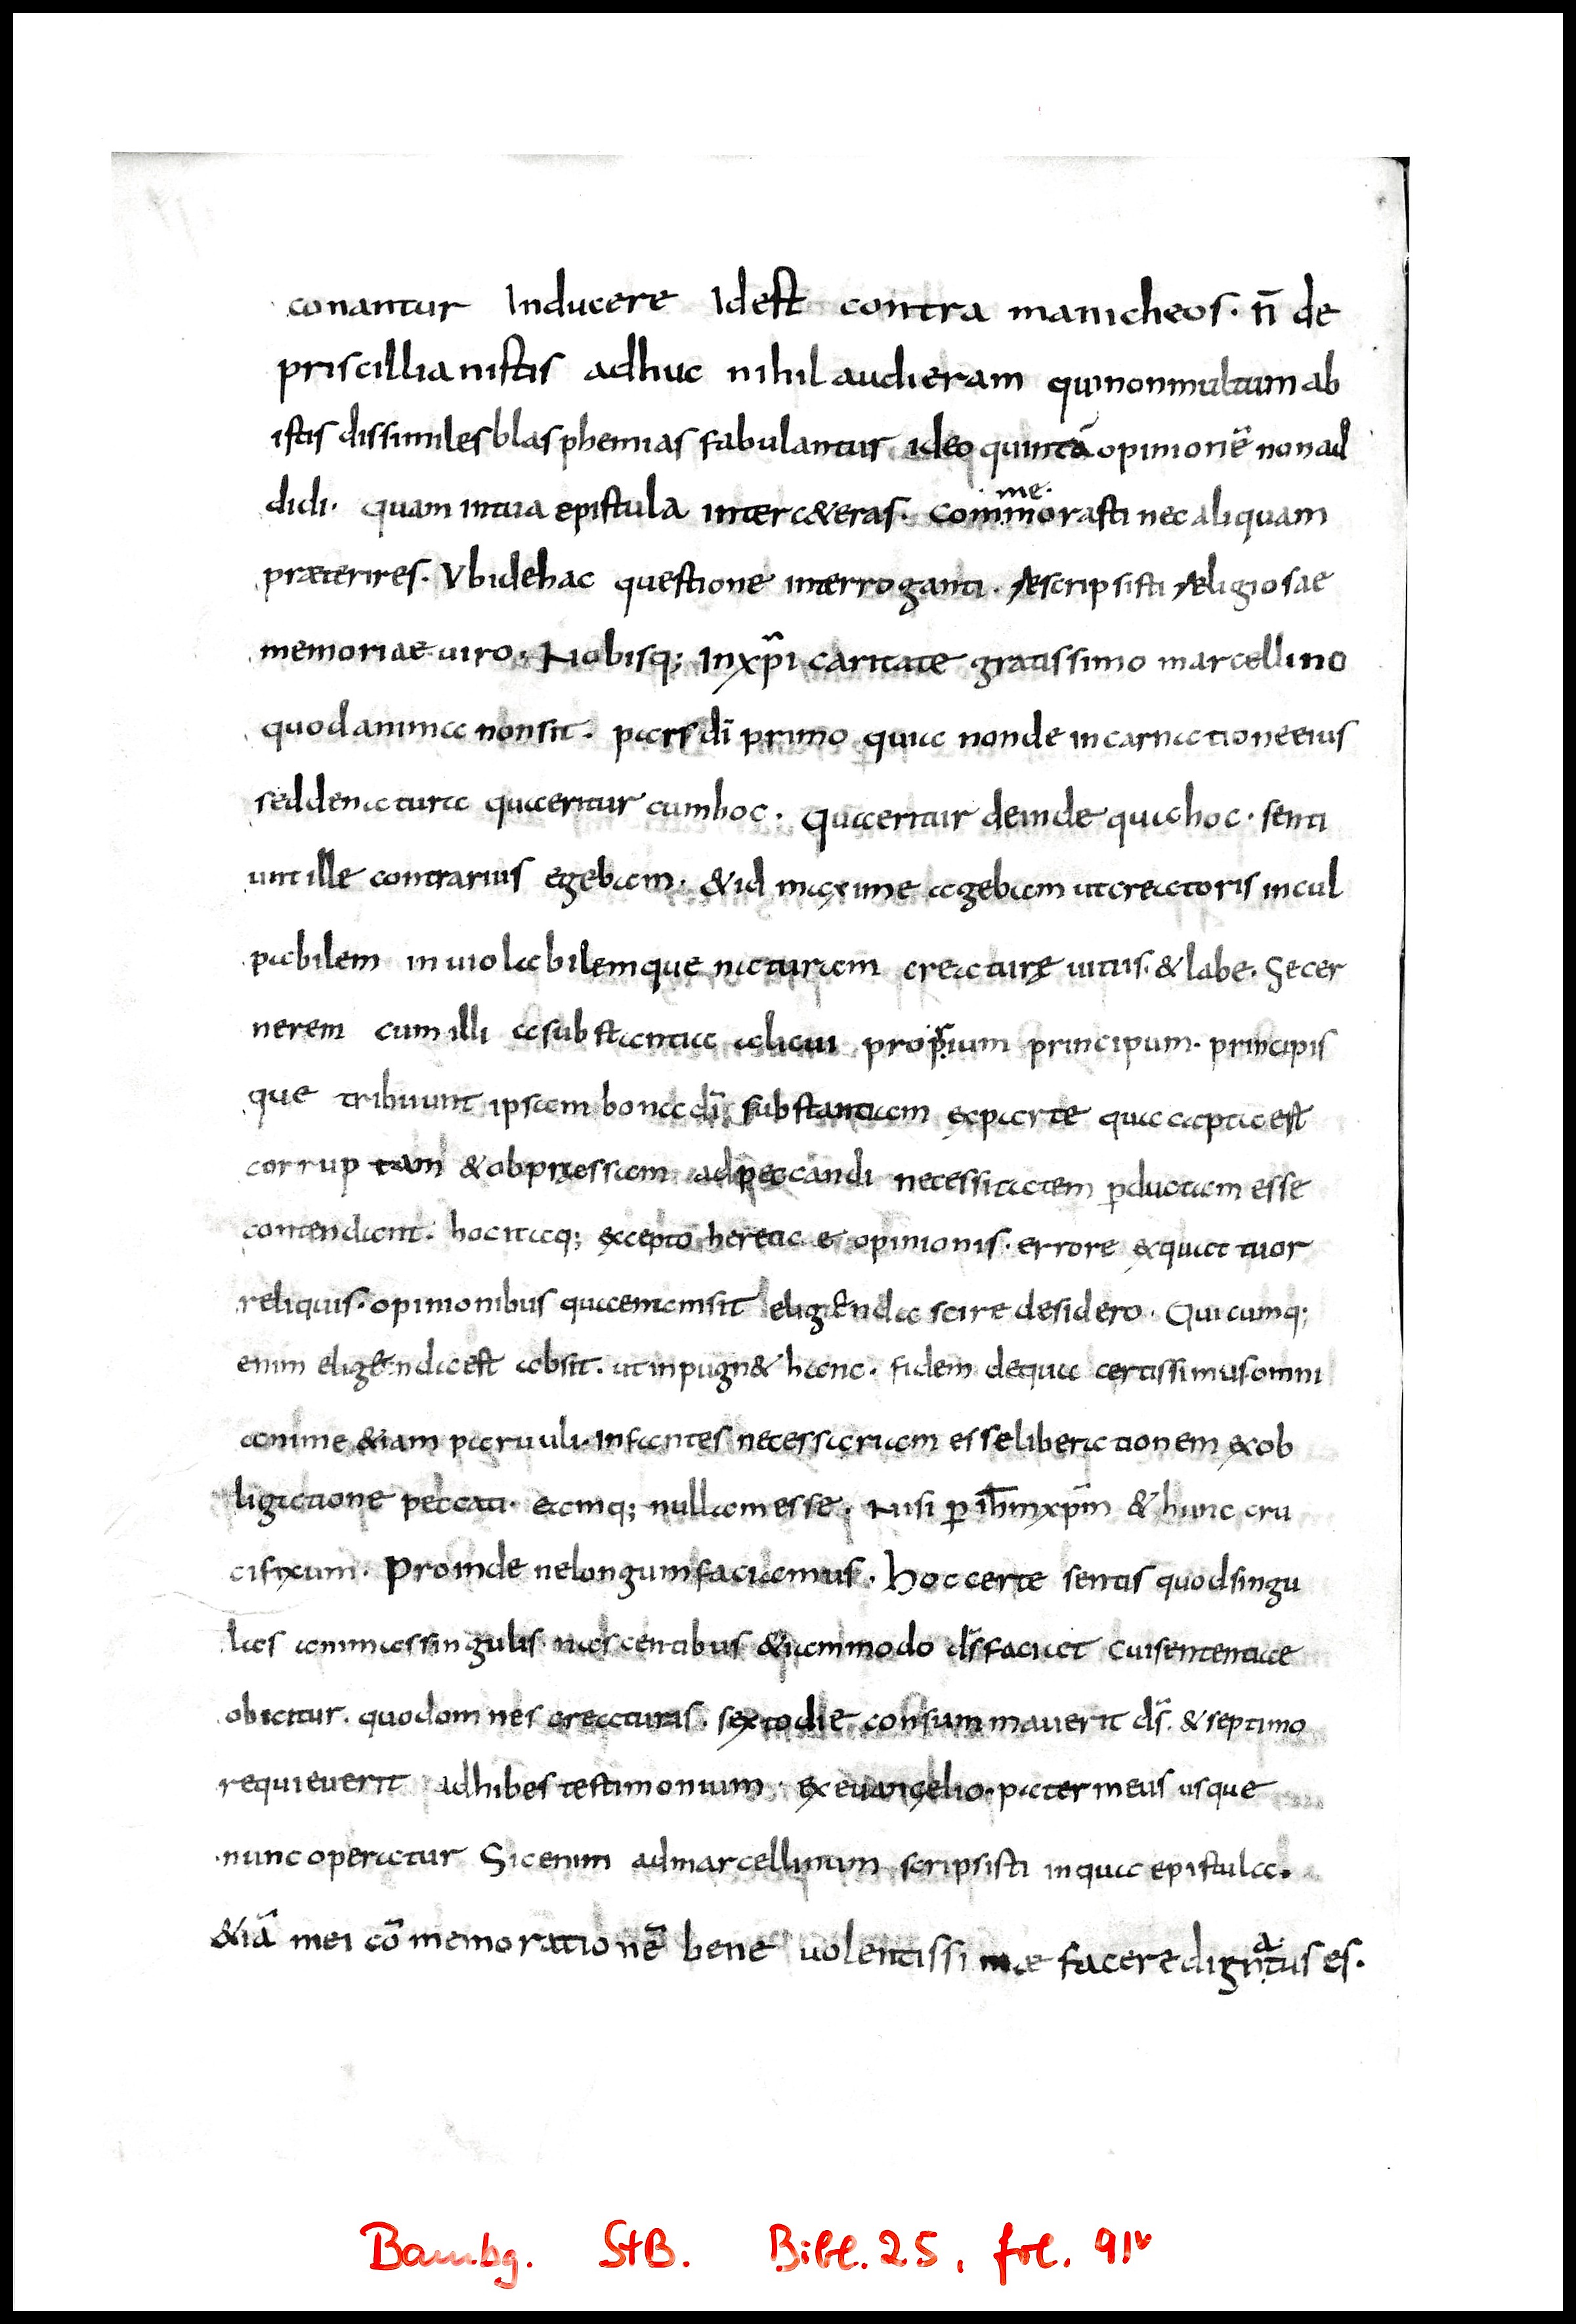 conantur Inducere Idest contra manicheos · n̄ de
priscillianistis adhuc nihil audieram qui non multum ab
istis dissimiles blasphemias fabulantur ideo quintā opinionē non ad
didi · quam in tua epistula inter c&eras · commorasti nec aliquam
·me·
præterires · Vbi de hac questione interroganti · rescripsisti religiosae
memoriae uiro · Nobisq; In xp̄i caritate gratissimo marcellino
quod anima non sit · pars dī primo quia non de incarnatione eius
sed de natura quaeritur cum hoc · quaeritur deinde quia hoc · senti
unt ille contrarius egebam · & id maxime agebam ut creatoris incul
pabilem inuiolabilemque naturam creaturę uitiis · & labe · Secer
nerem cum illi a substantia alicui proprium principum · principis
que tribuunt ipsam bona dī substantiam ex parte qua capta est
corruptam & obpressam ad peccandi necessitatem ꝑductam esse
contendant · hoc itaq; excepto heretice opinionis · errore ex quattuor
reliquis · opinionibus quaenam sit eligenda scire desidero · Quicumq;
enim eligenda est absit · ut inpugn& hanc · fidem de qua certissimus omni
anime &iam paruuli · infantes necessariam esse liberationem ex ob
ligatione peccati · eamq; nullam esse · Nisi ꝑ ihm̄ xpm̄ & hunc cru
cifixum · Proinde ne longum faciamus · Hoc certe sentis quod singu
las animas singulis nascentibus &iam modo ds̄ faciat cui sententiae
obicitur · quod omnes creaturas · sexto die consummauerit ds̄ · & septimo
requieuerit adhibes testimonium · ex euangelio · pater meus usque
nunc operatur Sic enim ad marcellinum scripsisti in qua epistula ·
&iā mei cōmemorationē beneuolentissimæ facere digntus es ·
a
Bambg. StB. Bibl. 25, fol. 91v